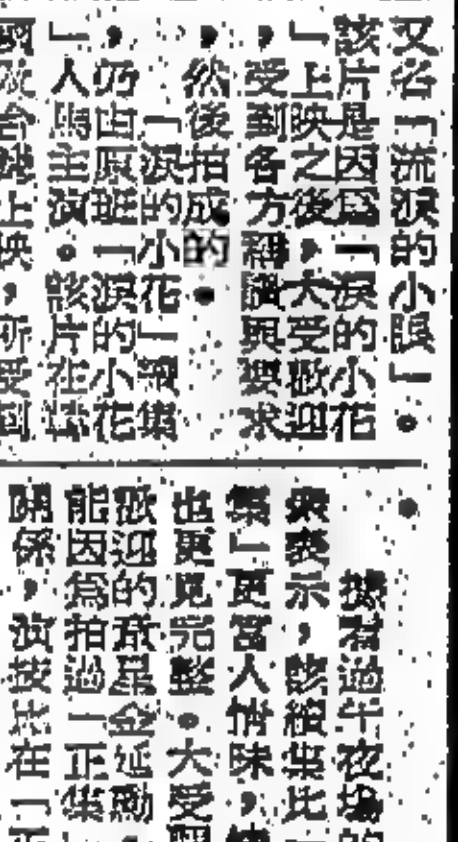 又名「流淚的小眼」。
該片是因爲「淚的小花
」上映之後,大受歡迎
,受到各方稱讚與要求
,然後拍成的。
「淚的小花」續集
,仍由原班「淚的小花
」人馬主演。該片在
上映,所受到
據看過午夜場的
衆表示,該續集比
集」更富人情味,
也更見完整。大受
歡迎的童星金延勳
能因爲拍過「正集
關係,演技比在「正